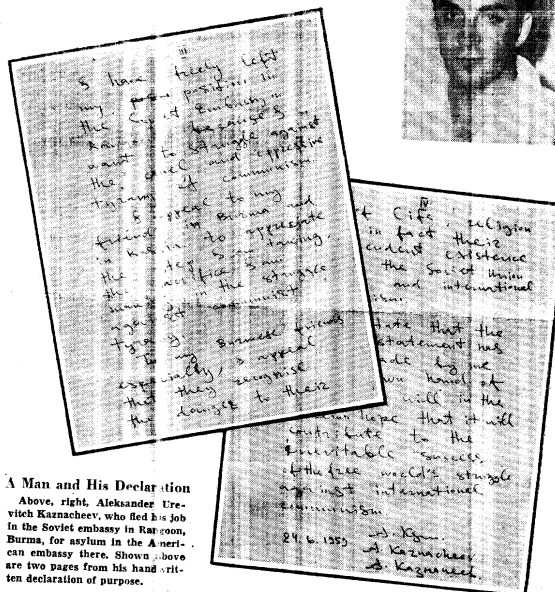 III
I have freely left
my position in
the Soviet Embassy in
because I
want to struggle against
the cruel and oppressive
tyranny of communism
I appeal to my
friends in Burma and
in Russia to appreciate
the step I am taking,
the sacrifice I am
making in the struggle
against communist
tyranny
To my Burmese friends
especially, I appeal
that they recognise
the danger to their
IV
of life religion
in fact their
existence
the Soviet Union
and international
ism.
state that the
statement has
made by me
own hand of
will in the
hope that it will
contribute to the
inevitable success
of the free world's struggle
against international
communism
24.6.1959
A. Kaznacheev
A. Kaznacheev
A Man and His Declaration
Above, right, Aleksander Ure-
vitch Kaznacheev, who fled his job
in the Soviet embassy in Rangoon,
Burma, for asylum in the Ameri-
can embassy there. Shown above
are two pages from his handwrit-
ten declaration of purpose.